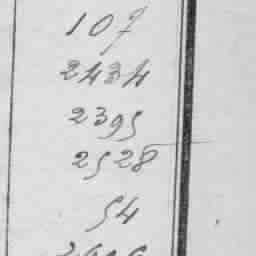 107
2434
2395
2528
54